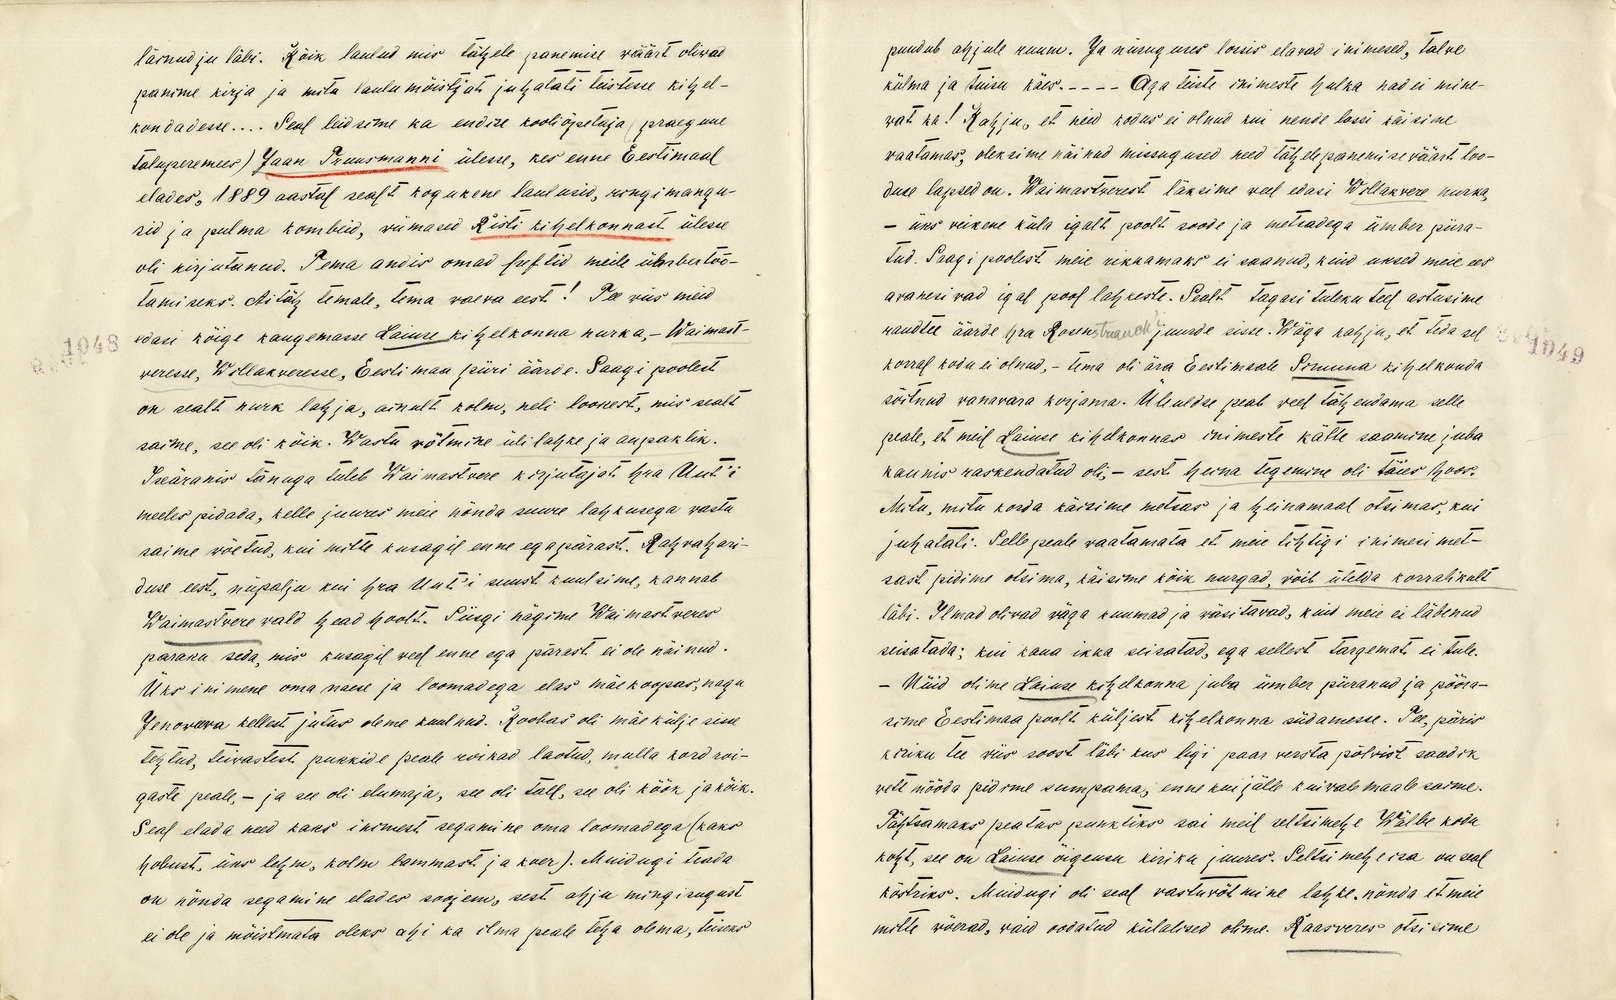 läinud ju läbi. Kõik laulud mis tähele panemise väärt olivad
panime kirja ja mitu laulumõistjat juhatati teistesse kihel-
kondadesse.... Seal leidsime ka endise kooliõpetaja (praegune
taluperemees) Jaan Pruusmanni ülesse, kes enne Eestimaal
elades, 1889 aastal sealt kogukene laulusid, ringimängu-
sid ja pulma kombeid, viimased Risti kihelkonnast ülesse
oli kirjutanud. Tema andis omad heftid meile ümbertöö-
tamiseks. Aitäh temale, tema vaeva eest! Tee viis meid
edasi kõige kaugemasse Laiuse kihelkonna nurka, – Waimast-
veresse, Wõllakveresse, Eestimaa piiri äärde. Saagi poolest
on sealt nurk lahja, ainult kolm, neli loonest, mis sealt
saime, see oli kõik. Wastu võtmine üli lahke ja aupaklik.
Iseäranis tänuga tuleb Waimastvere kirjutajat hra Unt'i
meeles pidada, kelle juures meie nõnda suure lahkusega vastu
saime võetud, kui mitte kusagil enne ega pärast. Rahvahari-
duse eest, niipalju kui hra Unt'i suust kuulsime, kannab
Waimastvere vald head hoolt. Siisgi nägime Waimastveres
paraku seda, mis kusagil veel enne ega pärast ei ole näinud.
Üks inimene oma naese ja loomadega elas mäekoopas, nagu
Jenoveva kellest jutus oleme kuulnud. Koobas oli mäe külje sisse
tehtud, teivastest pukkide peale roikad laotud, mulla kord roi-
gaste peale, – ja see oli elumaja, see oli tall, see oli köök ja kõik.
Seal elada need kaks inimest segamine oma loomadega (kaks
hobust, üks lehm, kolm lammast ja koer). Muidugi teada
on nõnda segamine elades soojem, sest ahju mingisugust
ei ole ja mõistmata oleks ahi ka ilma peale teha olema, teiseks
1048
puudub ahjule ruum. Ja niisuguses lossis elavad inimesed, talve
külma ja tuisu käes.---- Aga teiste inimeste hulka nad ei mine-
vat ka! Kahju, et neid kodus ei olnud kui nende lossi käisime
vaatamas, oleksime näinud missugused need tähelepanemise väärt loo-
duse lapsed on. Waimastverest läksime veel edasi Wõllakvere nurka,
– üks veikene küla igalt poolt soode ja metsadega ümber piira-
tud. Saagi poolest meie rikkamaks ei saanud, kuid uksed meie ees
avanesivad igal pool lahkeste. Sealt tagasi tuleku teel astusime
raudtee äärde hra Rosenstrauch juurde sisse. Wäga kahju, et teda sel
korral kodu ei olnud, – tema oli ära Eestimaale Simuna kihelkonda
sõitnud vanavara korjama. Üleuldse peab veel tähendama selle
peale, et meil Laiuse kihelkonnas inimeste kätte saamine juba
kaunis raskendatud oli, – sest heina tegemine oli täies hoos.
Mitu, mitu korda käisime metsas ja heinamaal otsimas, kui
juhatati. Selle peale vaatamata et meie tihtigi inimesi met-
sast pidime otsima, käisime kõik nurgad, võib ütelda korralikult
läbi. Ilmad olivad väga kuumad ja väsitavad, kuid meie ei läbenud
seisatada; kui kaua ikka seisatad, ega sellest targemat ei tule.
– Nüid olime Laiuse kihelkonna juba ümber piiranud ja pööra-
sime Eestimaa poolt küljest kihelkonna südamesse. Tee, päris
kiriku tee viis soost läbi kus ligi paar versta põlvist saadik
vett mööda pidime sumpama, enne kui jälle kuivale maale saime.
Tähtsamaks peatus punktiks sai meil seltsimehe Wälbe kodu
koht, see on Laiuse õigeusu kiriku juures. Seltsimehe isa on seal
köstriks. Muidugi oli seal vastuvõtmine lahke, nõnda et meie
mitte võerad, vaid oodatud külalised olime. Kaasveres otsisime
1049